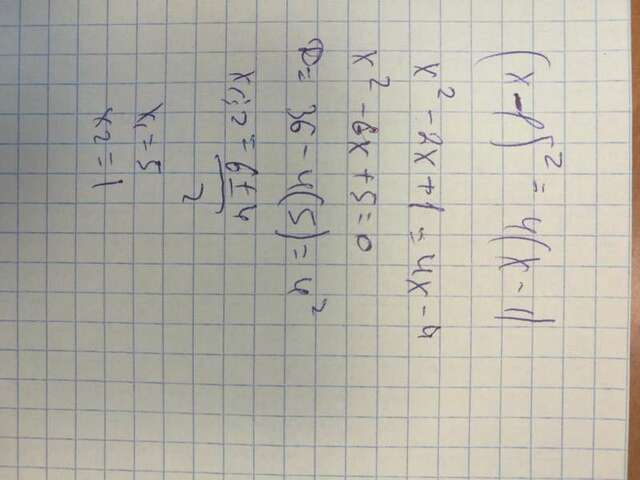 (x-1)² = 4(x-1)
x² - 2x + 1 = 4x - 4
x² - 6x + 5 = 0
D = 36 - 4(5) = 4²
x₁;₂ = (6 ∓ 4)/2
x₁ = 5
x₂ = 1